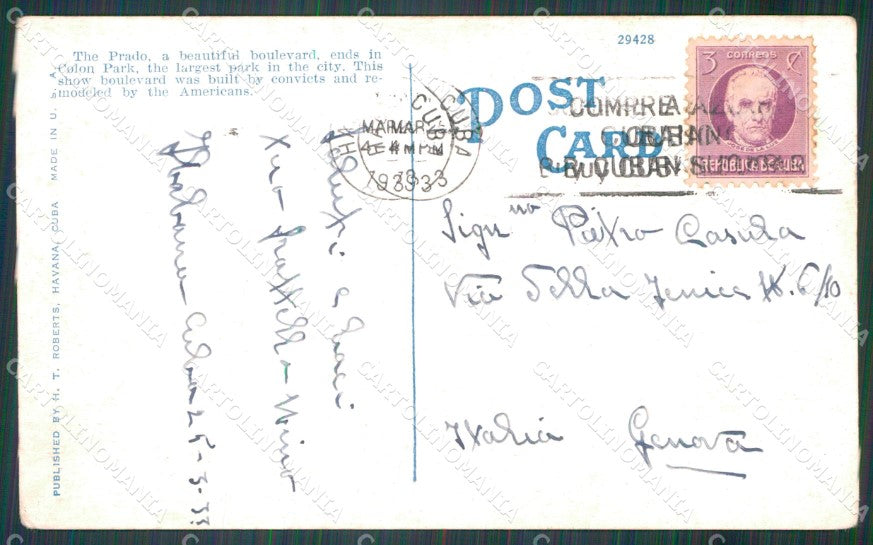 The Prado, a beautiful boulevard, ends in
Colon Park, the largest park in the city. This
show boulevard was built by convicts and re-
modeled by the Americans.
29428
POST
CARD
3 CORREOS ¢
REPUBLICA DE CUBA
CUBA
MAR
4
1933
COMPRE
CUBAN
BUY CUBAN
MADE IN U. S. A.
PUBLISHED BY H. T. ROBERTS, HAVANA, CUBA
Saluti e baci
tuo fratello Nino
Habana Cuba 25-3-33
Sign no Pietro Casura
Via Jenica 6/10
Italia Genova
CARTOLINOMANIA